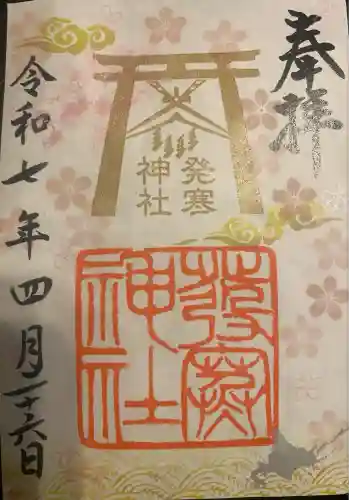 奉拝
発寒
神社
発寒
神社
令和七年四月二十六日